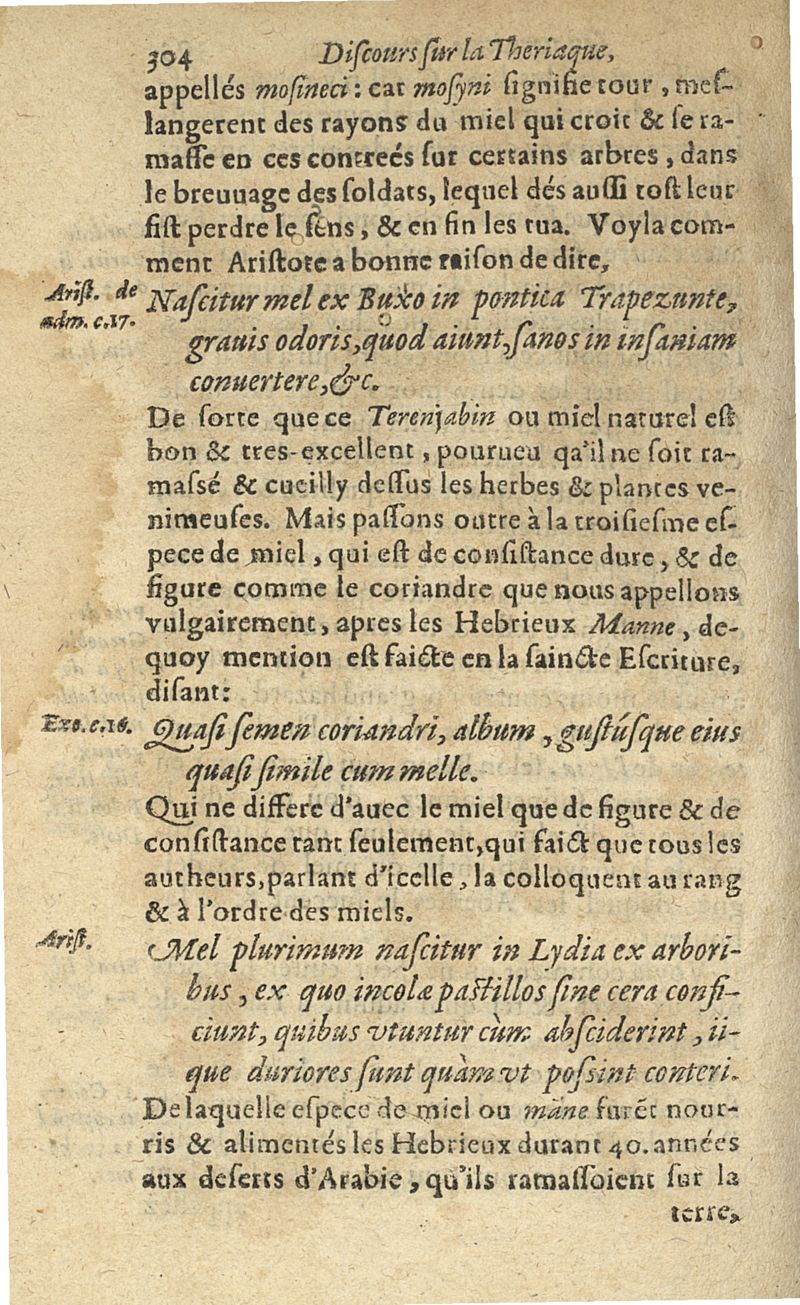 304 Diſcours ſur la Theriaque,
appellés moſineci : car moſyni ſignifie tour , meſ-
langerent des rayons du miel qui croit & ſe ra-
maſſe en ces contreés ſur certains arbres , dans
le breuuage des ſoldats, lequel dés auſſi toſt leur
fiſt perdre le ſens , & en fin les tua. Voyla com-
ment Ariſtote a bonne raiſon de dire,
Ariſt. de
adm. c.17.
Naſcitur mel ex Buxo in pontica Trapezunte,
grauis odoris, quod aiunt, ſanos in inſaniam
conuertere, &c.
De ſorte que ce Terenjabin ou miel naturel eſt
bon & tres-excellent , pourueu qu'il ne ſoit ra-
maſsé & cueilly deſſus les herbes & plantes ve-
nimeuſes. Mais paſſons outre à la troiſieſme eſ-
pece de miel , qui eſt de conſiſtance dure, & de
figure comme le coriandre que nous appellons
vulgairement, apres les Hebrieux Manne, de-
quoy mention eſt faicte en la ſaincte Eſcriture,
diſant:
Exo. c.16.
Quaſi ſemen coriandri, album , guſtúſque eius
quaſi ſimile cum melle.
Qui ne differe d'auec le miel que de figure & de
conſiſtance tant ſeulement, qui faict que tous les
autheurs, parlant d'icelle , la colloquent au rang
& à l'ordre des miels.
Ariſt.
Mel plurimum naſcitur in Lydia ex arbori-
bus , ex quo incolæ paſtillos ſine cera confi-
ciunt, quibus vtuntur cùm abſciderint , ii-
que duriores ſunt quàm vt poſsint conteri.
De laquelle eſpece de miel ou mãne furẽt nour-
ris & alimentés les Hebrieux durant 40. années
aux deſerts d'Arabie , qu'ils ramaſſoient ſur la
terre,